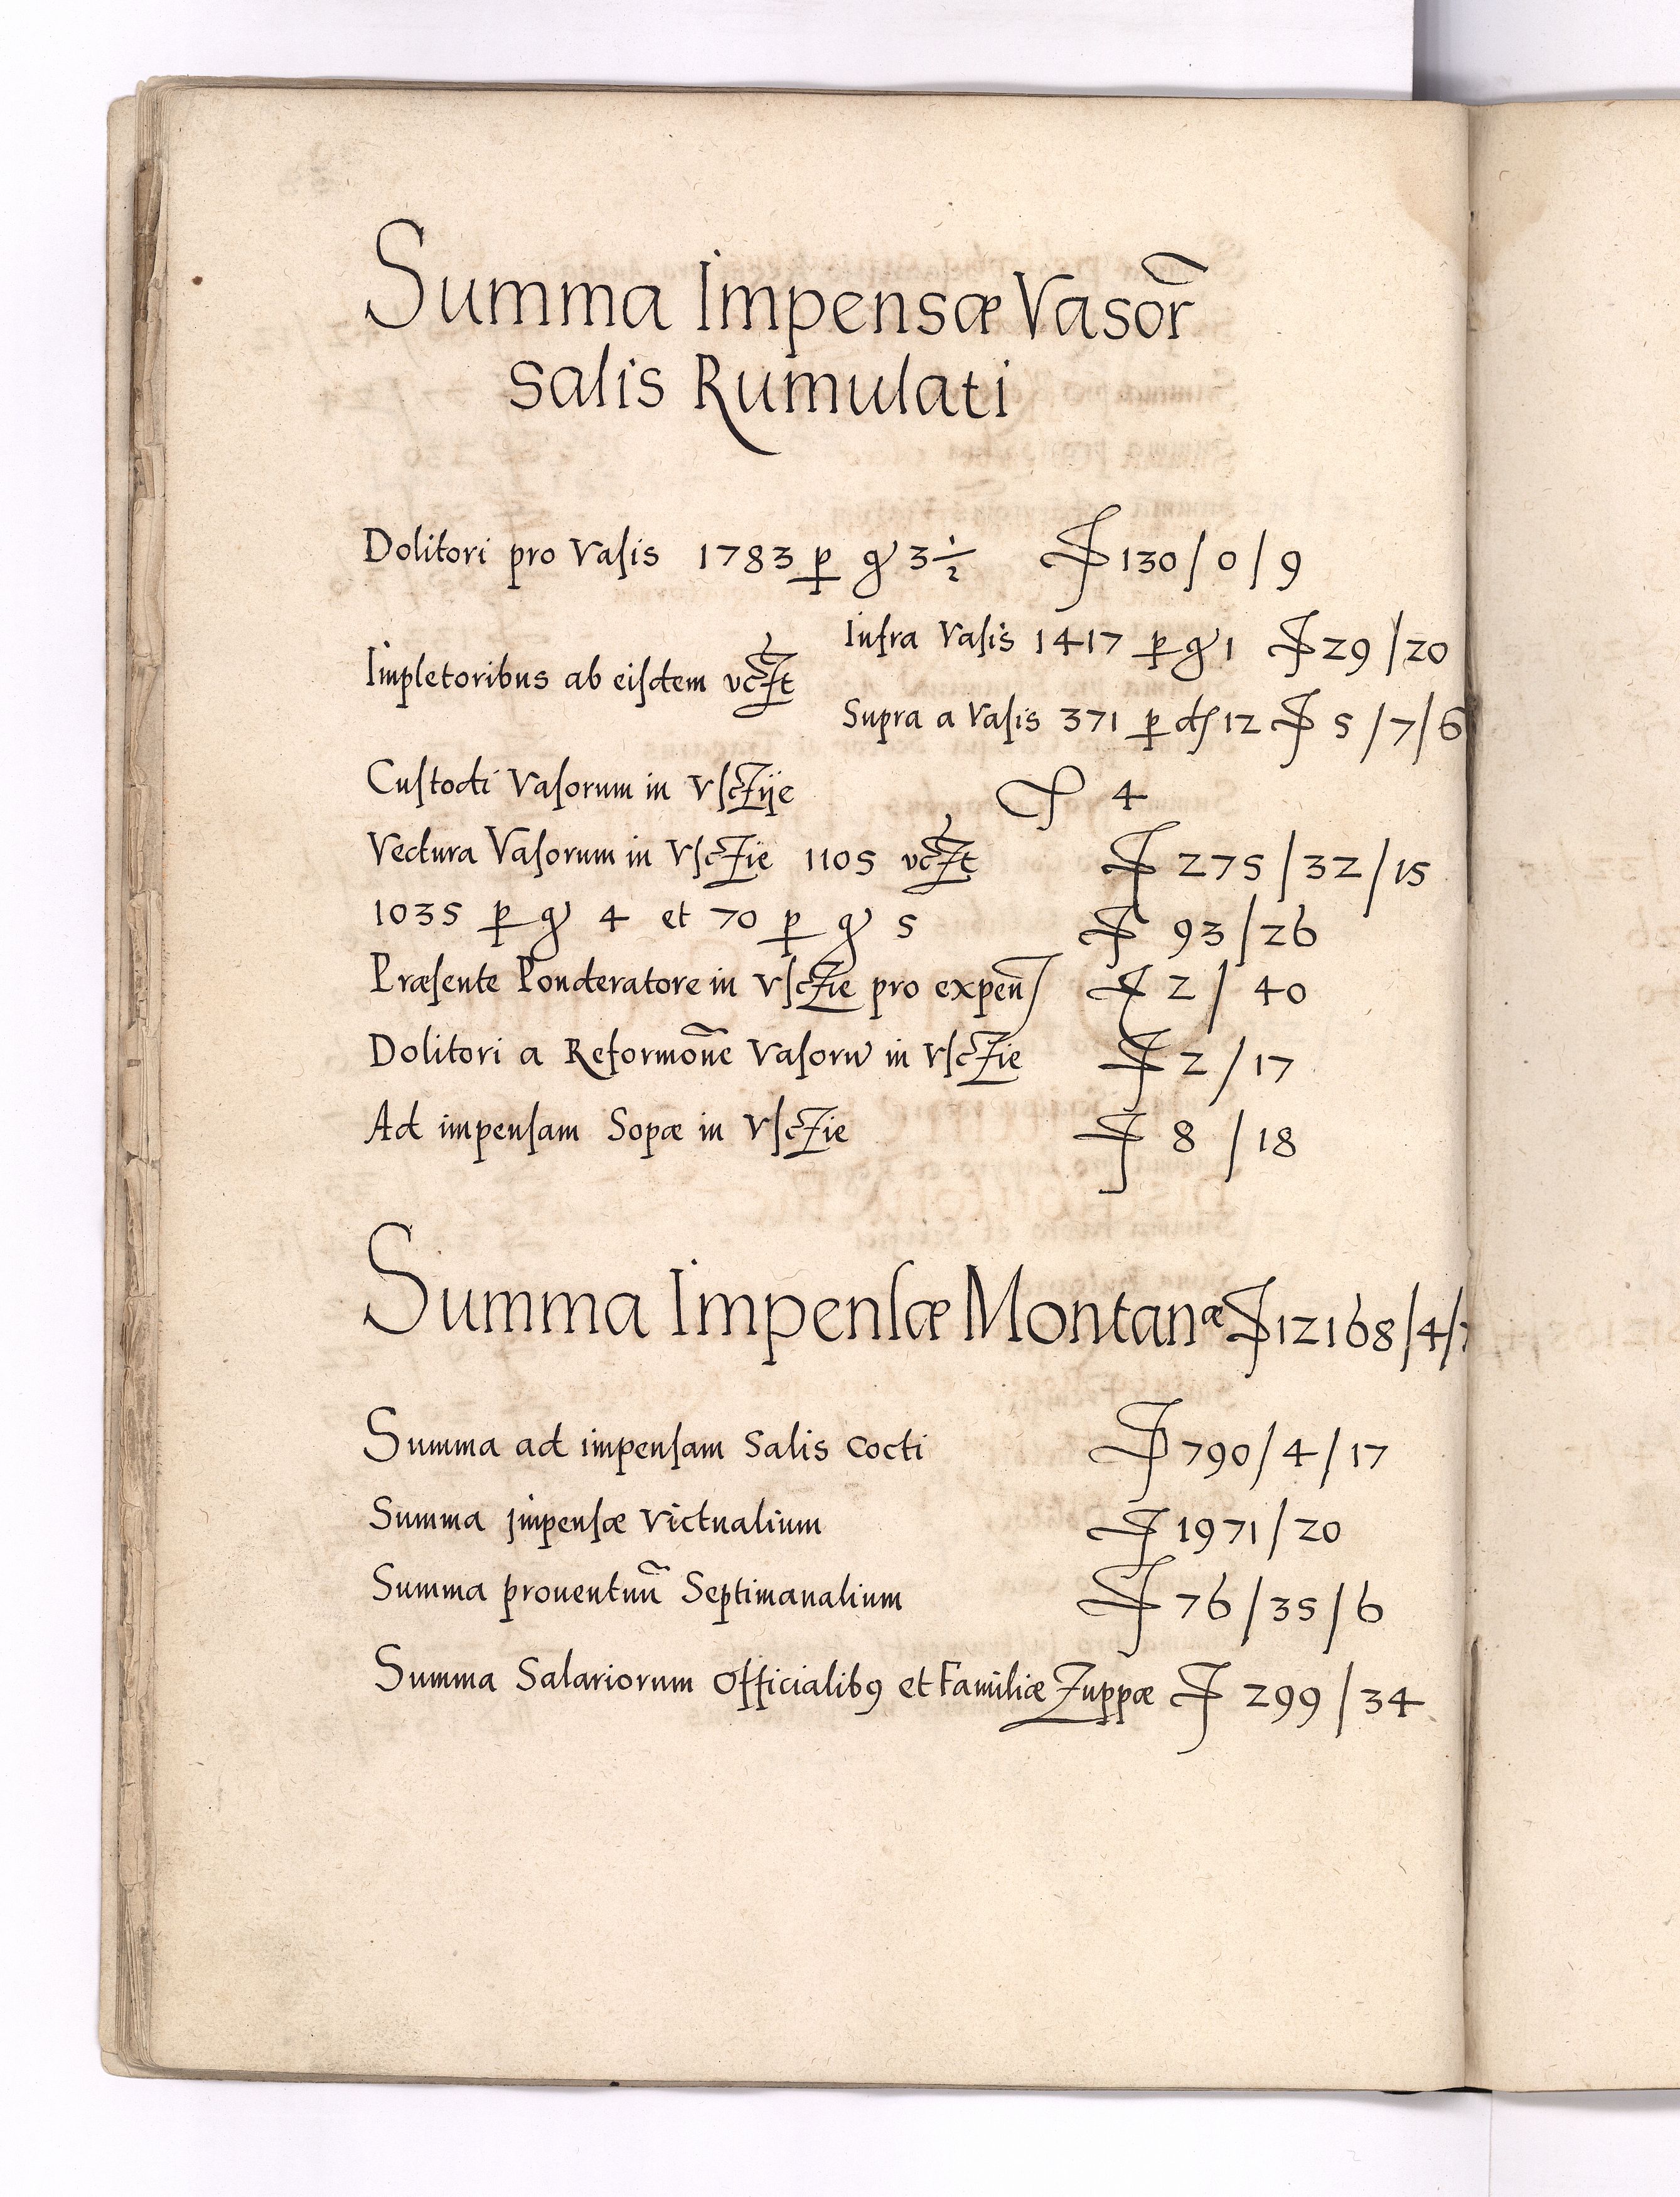 Summa Impensæ Vasor̃
salis Rumulati
Dolitori pro Vasis 1783 p gͬ 3 1/2 F 130/0/9
Infra Vasis 1417 p gͬ 1 F 29/20
Impletoribus ab eisdem
Supra a Vasis 371 p 12 F 5/7/6
Custodi Vasorum in VſcZije F 4
Vectura Vasorum in VſcZie 1105 F 275/32/15
1035 p gͬ 4 et 70 p gͬ 5 F 93/26
Præsente Ponderatore in VſcZie pro expeñ F 2/40
Dolitori a Reformõne Vasorũ in VſcZie F 2/17
Ad impensam Sopæ in VſcZie F 8/18
Summa Impensæ Montanæ F 12168/4/
Summa ad impensam Salis cocti F 790/4/17
Summa jmpensæ Victualium F 1971/20
Summa prouentuũ Septimanalium F 76/35/6
Summa Salariorum Officialibꝰ et Familiæ Zuppæ F 299/34